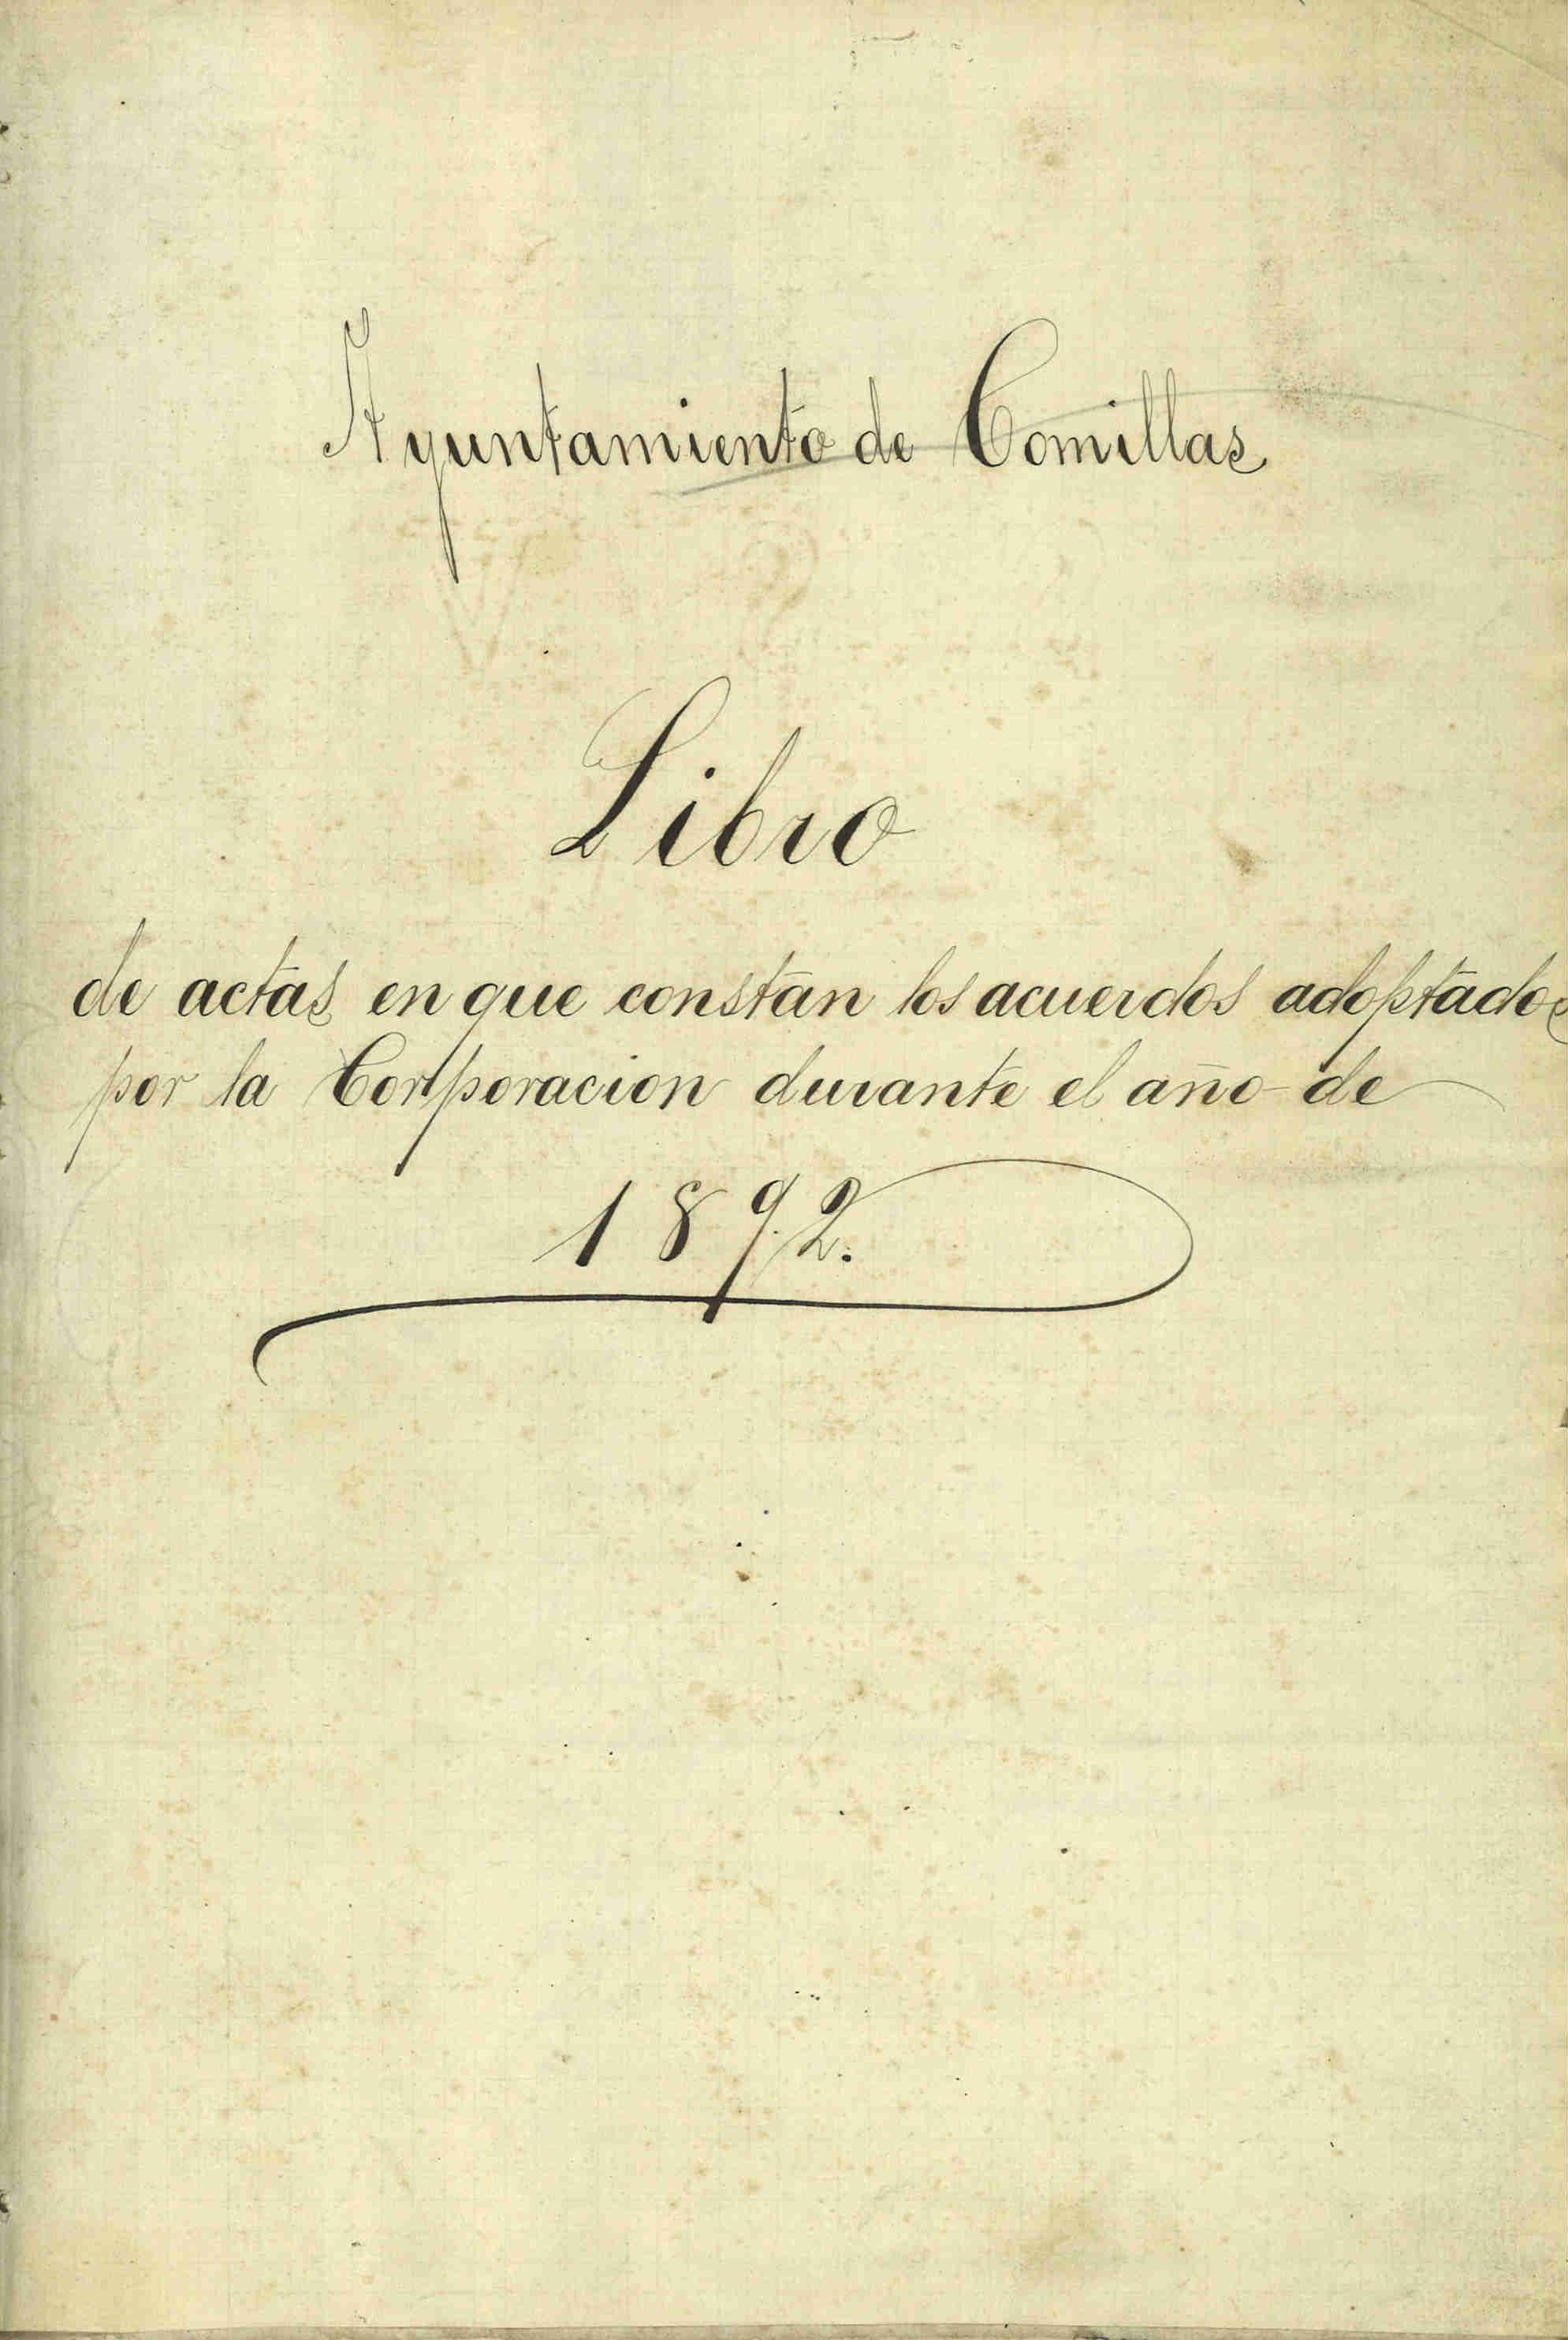 Ayuntamiento de Comillas
Libro
de actas en que constan los acuerdos adoptados
por la Corporacion durante el año de
1892.